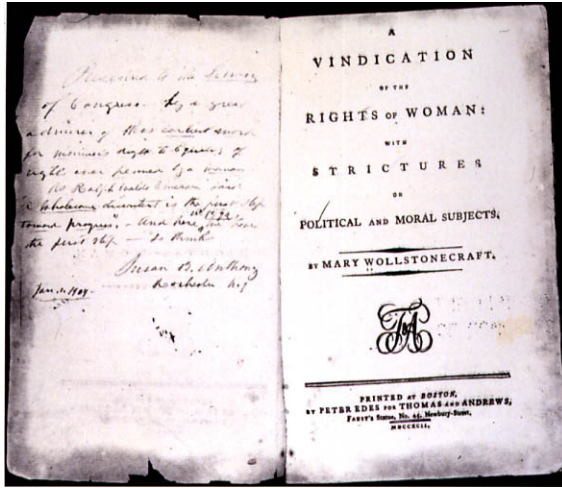 Presented to the Library
of Congress by a great
admirer of this earliest
for woman's right to Equality of
right ever penned by a woman
As Ralph Waldo Emerson said
"A wholesome discontent is the first step
toward progress". And here in 1792 we have
the first step — So thinks
Susan B. Anthony
Rochester N.Y.
Jan. 1, 1904.
A
VINDICATION
OF THE
RIGHTS OF WOMAN:
WITH
STRICTURES
ON
POLITICAL AND MORAL SUBJECTS.
BY MARY WOLLSTONECRAFT.
T&A
PRINTED AT BOSTON,
BY PETER EDES FOR THOMAS AND ANDREWS,
FAUST'S Statue, No. 45, Newbury-Street,
MDCCXCII.